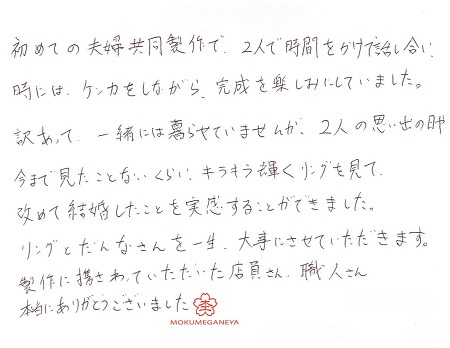 初めての夫婦共同製作で、2人で時間をかけて話し合い、
時には、ケンカをしながら、完成を楽しみにしていました。
訳あって、一緒には暮らせていませんが、2人の思い出の時
今まで見たことないくらい、キラキラ輝くリングを見て、
改めて結婚したことを実感することができました。
リングとだんなさんを一生、大事にさせていただきます。
製作に携さわっていただいた店員さん、職人さん
本当にありがとうございました
MOKUMEGANEYA